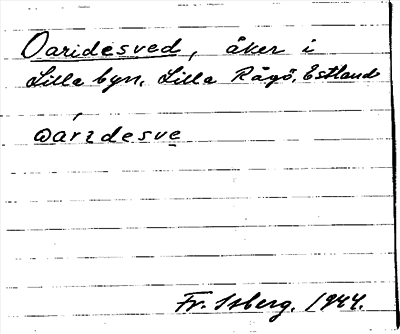 Oaridesved, åker i
Lilla byn, Lilla Rågö, Estland
oarıdesve
Fr. Isberg. 1944.